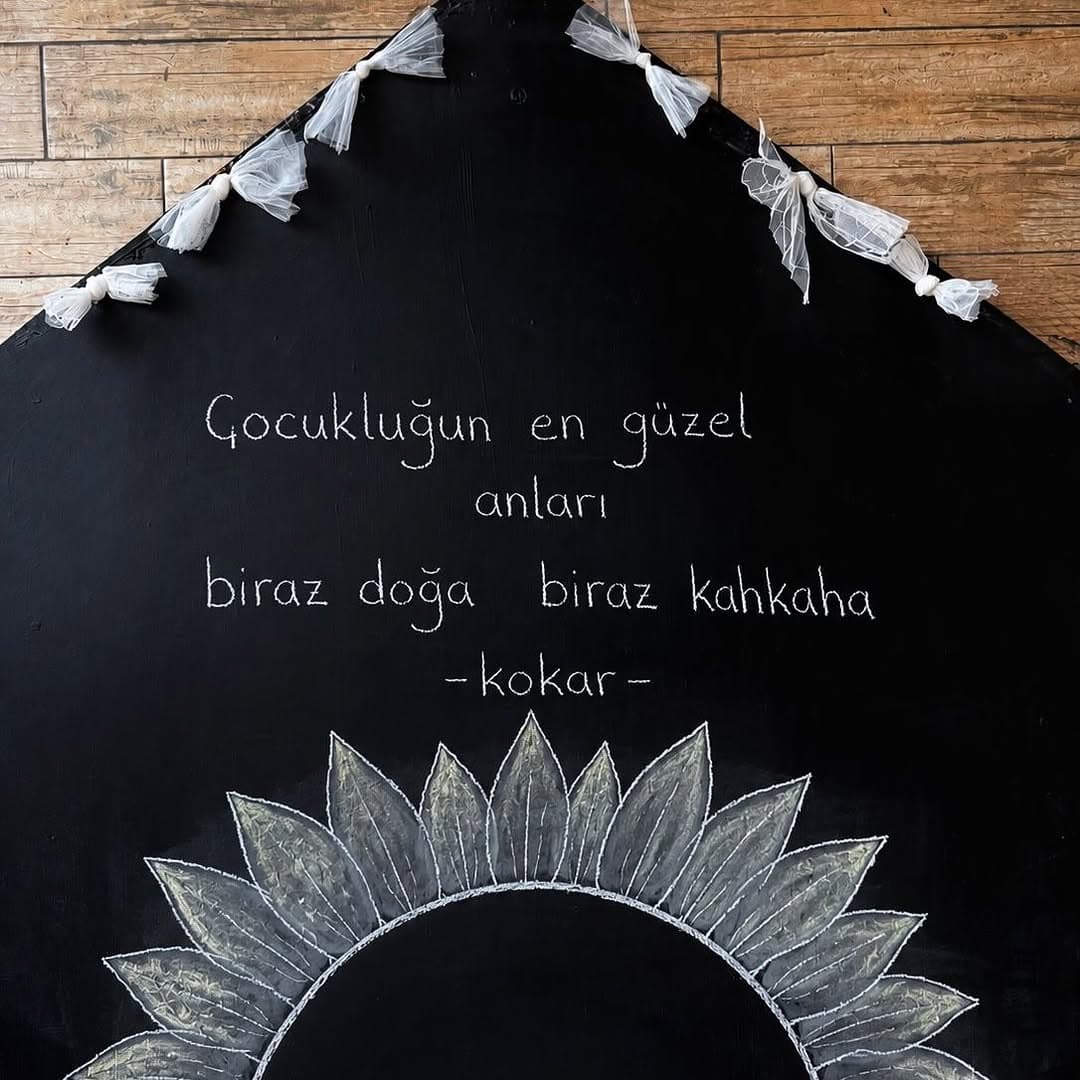 Çocukluğun en güzel
anları
biraz doğa biraz kahkaha
-kokar-